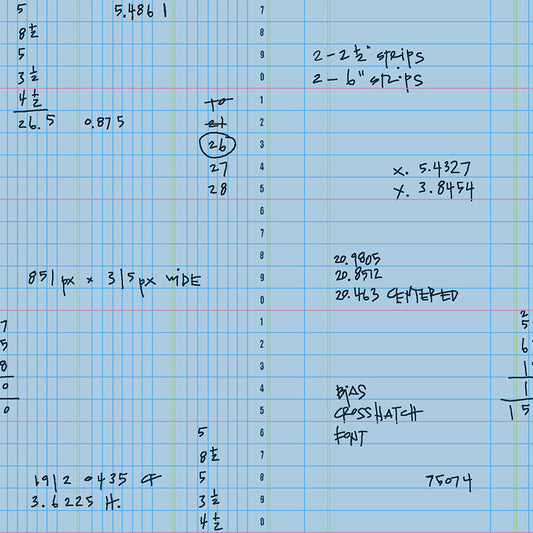 5
8 1/2
5
3 1/2
4 1/2
26.5 0.875
5.4861
7
8
9
0
1
2
3
4
5
6
7
8
9
0
1
2
3
4
5
6
7
8
9
0
2 - 2 1/2" STRIPS
2 - 6" STRIPS
10
21
26
27
28
X. 5.4327
Y. 3.8454
851px x 315px WIDE
20.9805
20.8512
20.463 CENTERED
7
5
8
0
0
BIAS
CROSSHATCH
FONT
2
5
6
1
1
15
5
8 1/2
5
3 1/2
4 1/2
1912 0435 CF
3.6225 H.
75074